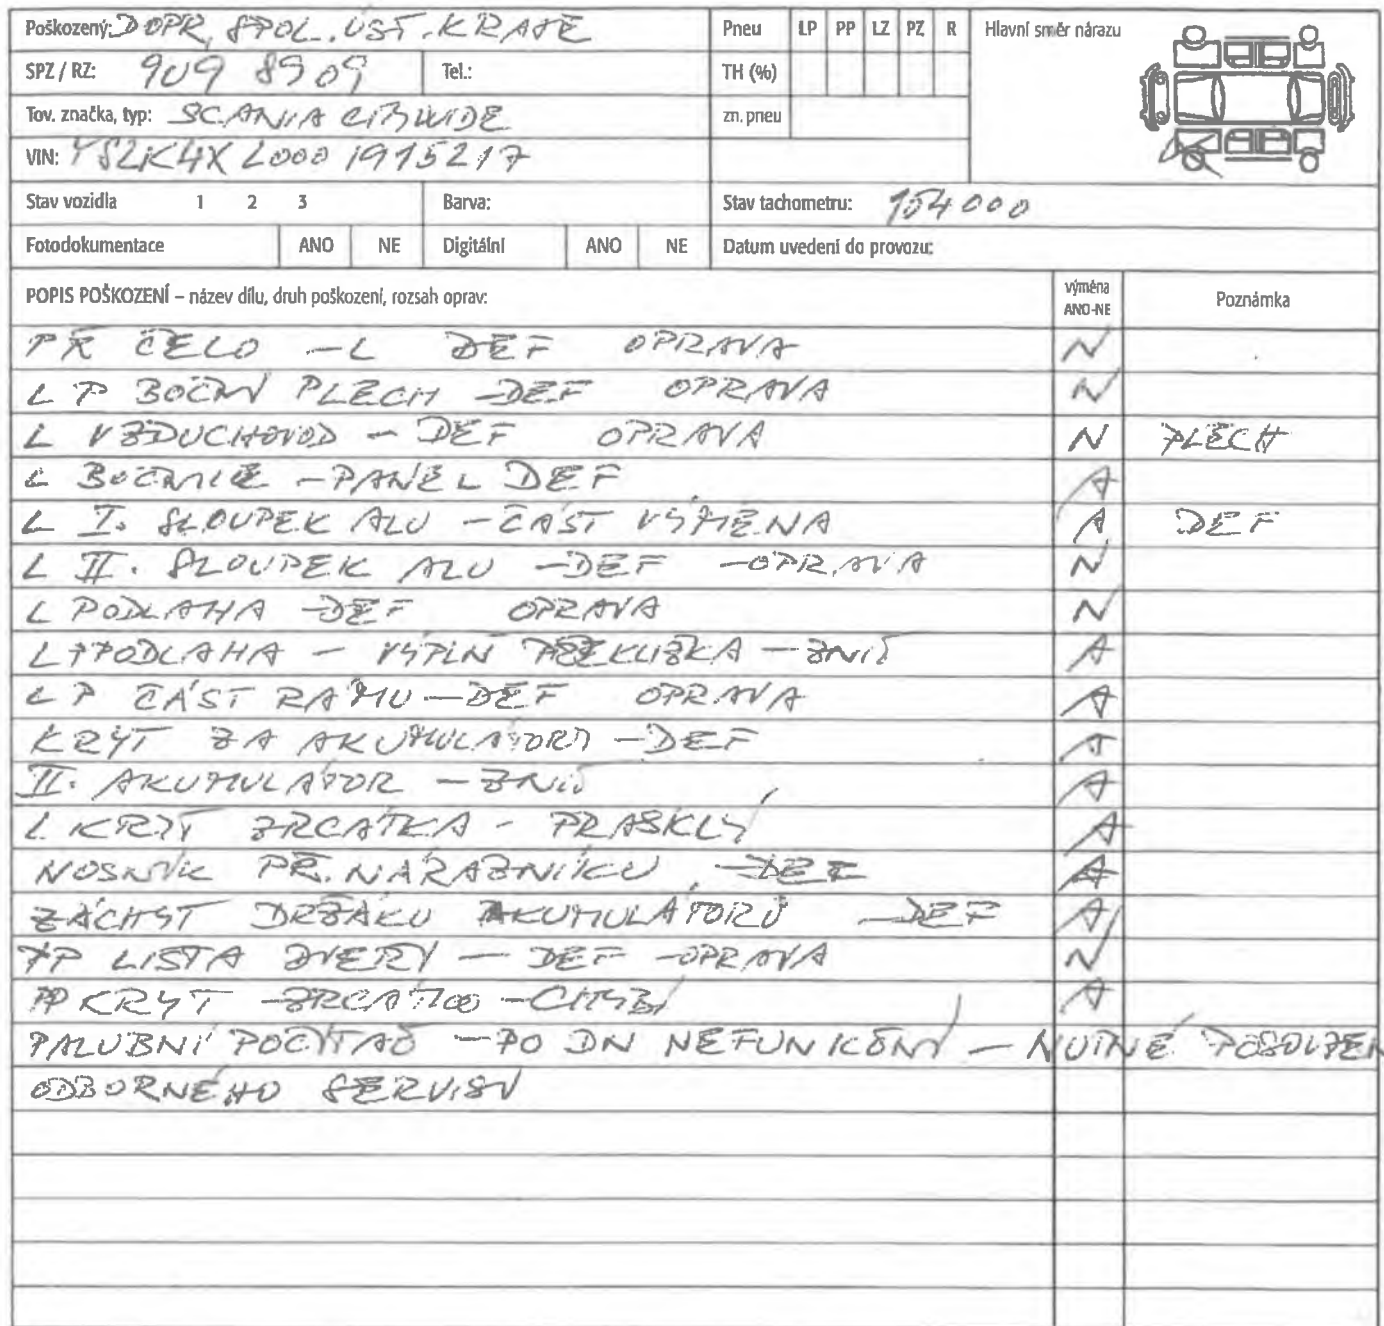 Poškozený: DOPR. SPOL. ÚST. KRAJE Pneu LP PP LZ PZ R Hlavní směr nárazu
SPZ / RZ: 909 8909 Tel.: TH (%)
Tov. značka, typ: SCANIA CITYWIDE zn. pneu
VIN: YS2K4X20001915217
Stav vozidla 1 2 3 Barva: Stav tachometru: 154000
Fotodokumentace ANO NE Digitální ANO NE Datum uvedení do provozu:
POPIS POŠKOZENÍ – název dílu, druh poškození, rozsah oprav: výměna ANO-NE Poznámka
PŘ ČELO - L DEF OPRAVA N
L P BOČNÍ PLECH - DEF OPRAVA N
L VZDUCHOVOD - DEF OPRAVA N PLECH
L BOČNICE - PANEL DEF A
L I. SLOUPEK ALU - ČÁST VÝMĚNA A DEF
L II. SLOUPEK ALU - DEF - OPRAVA N
L PODLAHA - DEF OPRAVA N
L PODLAHA - VÝPLŇ PŘEKLIŽKA - ZNIČ A
L P ČÁST RÁMU - DEF OPRAVA A
KRYT ZA AKUMULÁTORY - DEF A
II. AKUMULÁTOR - ZNIČ A
L KRYT ZRCÁTKA - PRASKLÝ A
NOSNÍK PŘ. NÁRAZNÍKU - DEF A
ZÁCHYT DRŽÁKU AKUMULÁTORŮ - DEF A
PP LIŠTA DVEŘÍ - DEF - OPRAVA N
PP KRYT - ZRCÁTKO - CHYBÍ A
PALUBNÍ POČÍTAČ - PO DN NEFUNKČNÍ - NUTNÉ POSOUZEN
ODBORNÉHO SERVISU